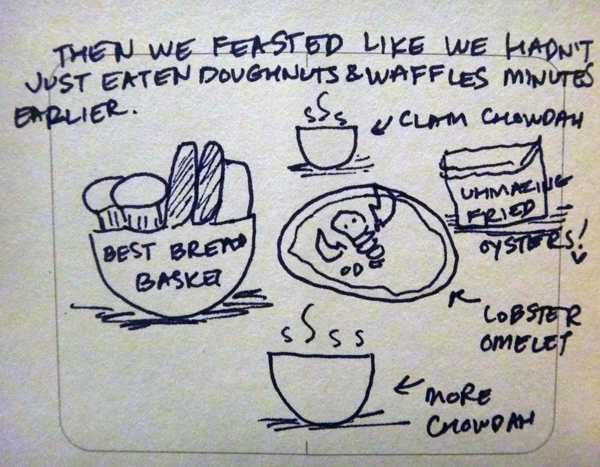 THEN WE FEASTED LIKE WE HADN'T
JUST EATEN DOUGHNUTS & WAFFLES MINUTES
EARLIER.
CLAM CHOWDAH
UHMAZING
FRIED
OYSTERS!
BEST BREAD
BASKET
LOBSTER
OMELET
MORE
CHOWDAH